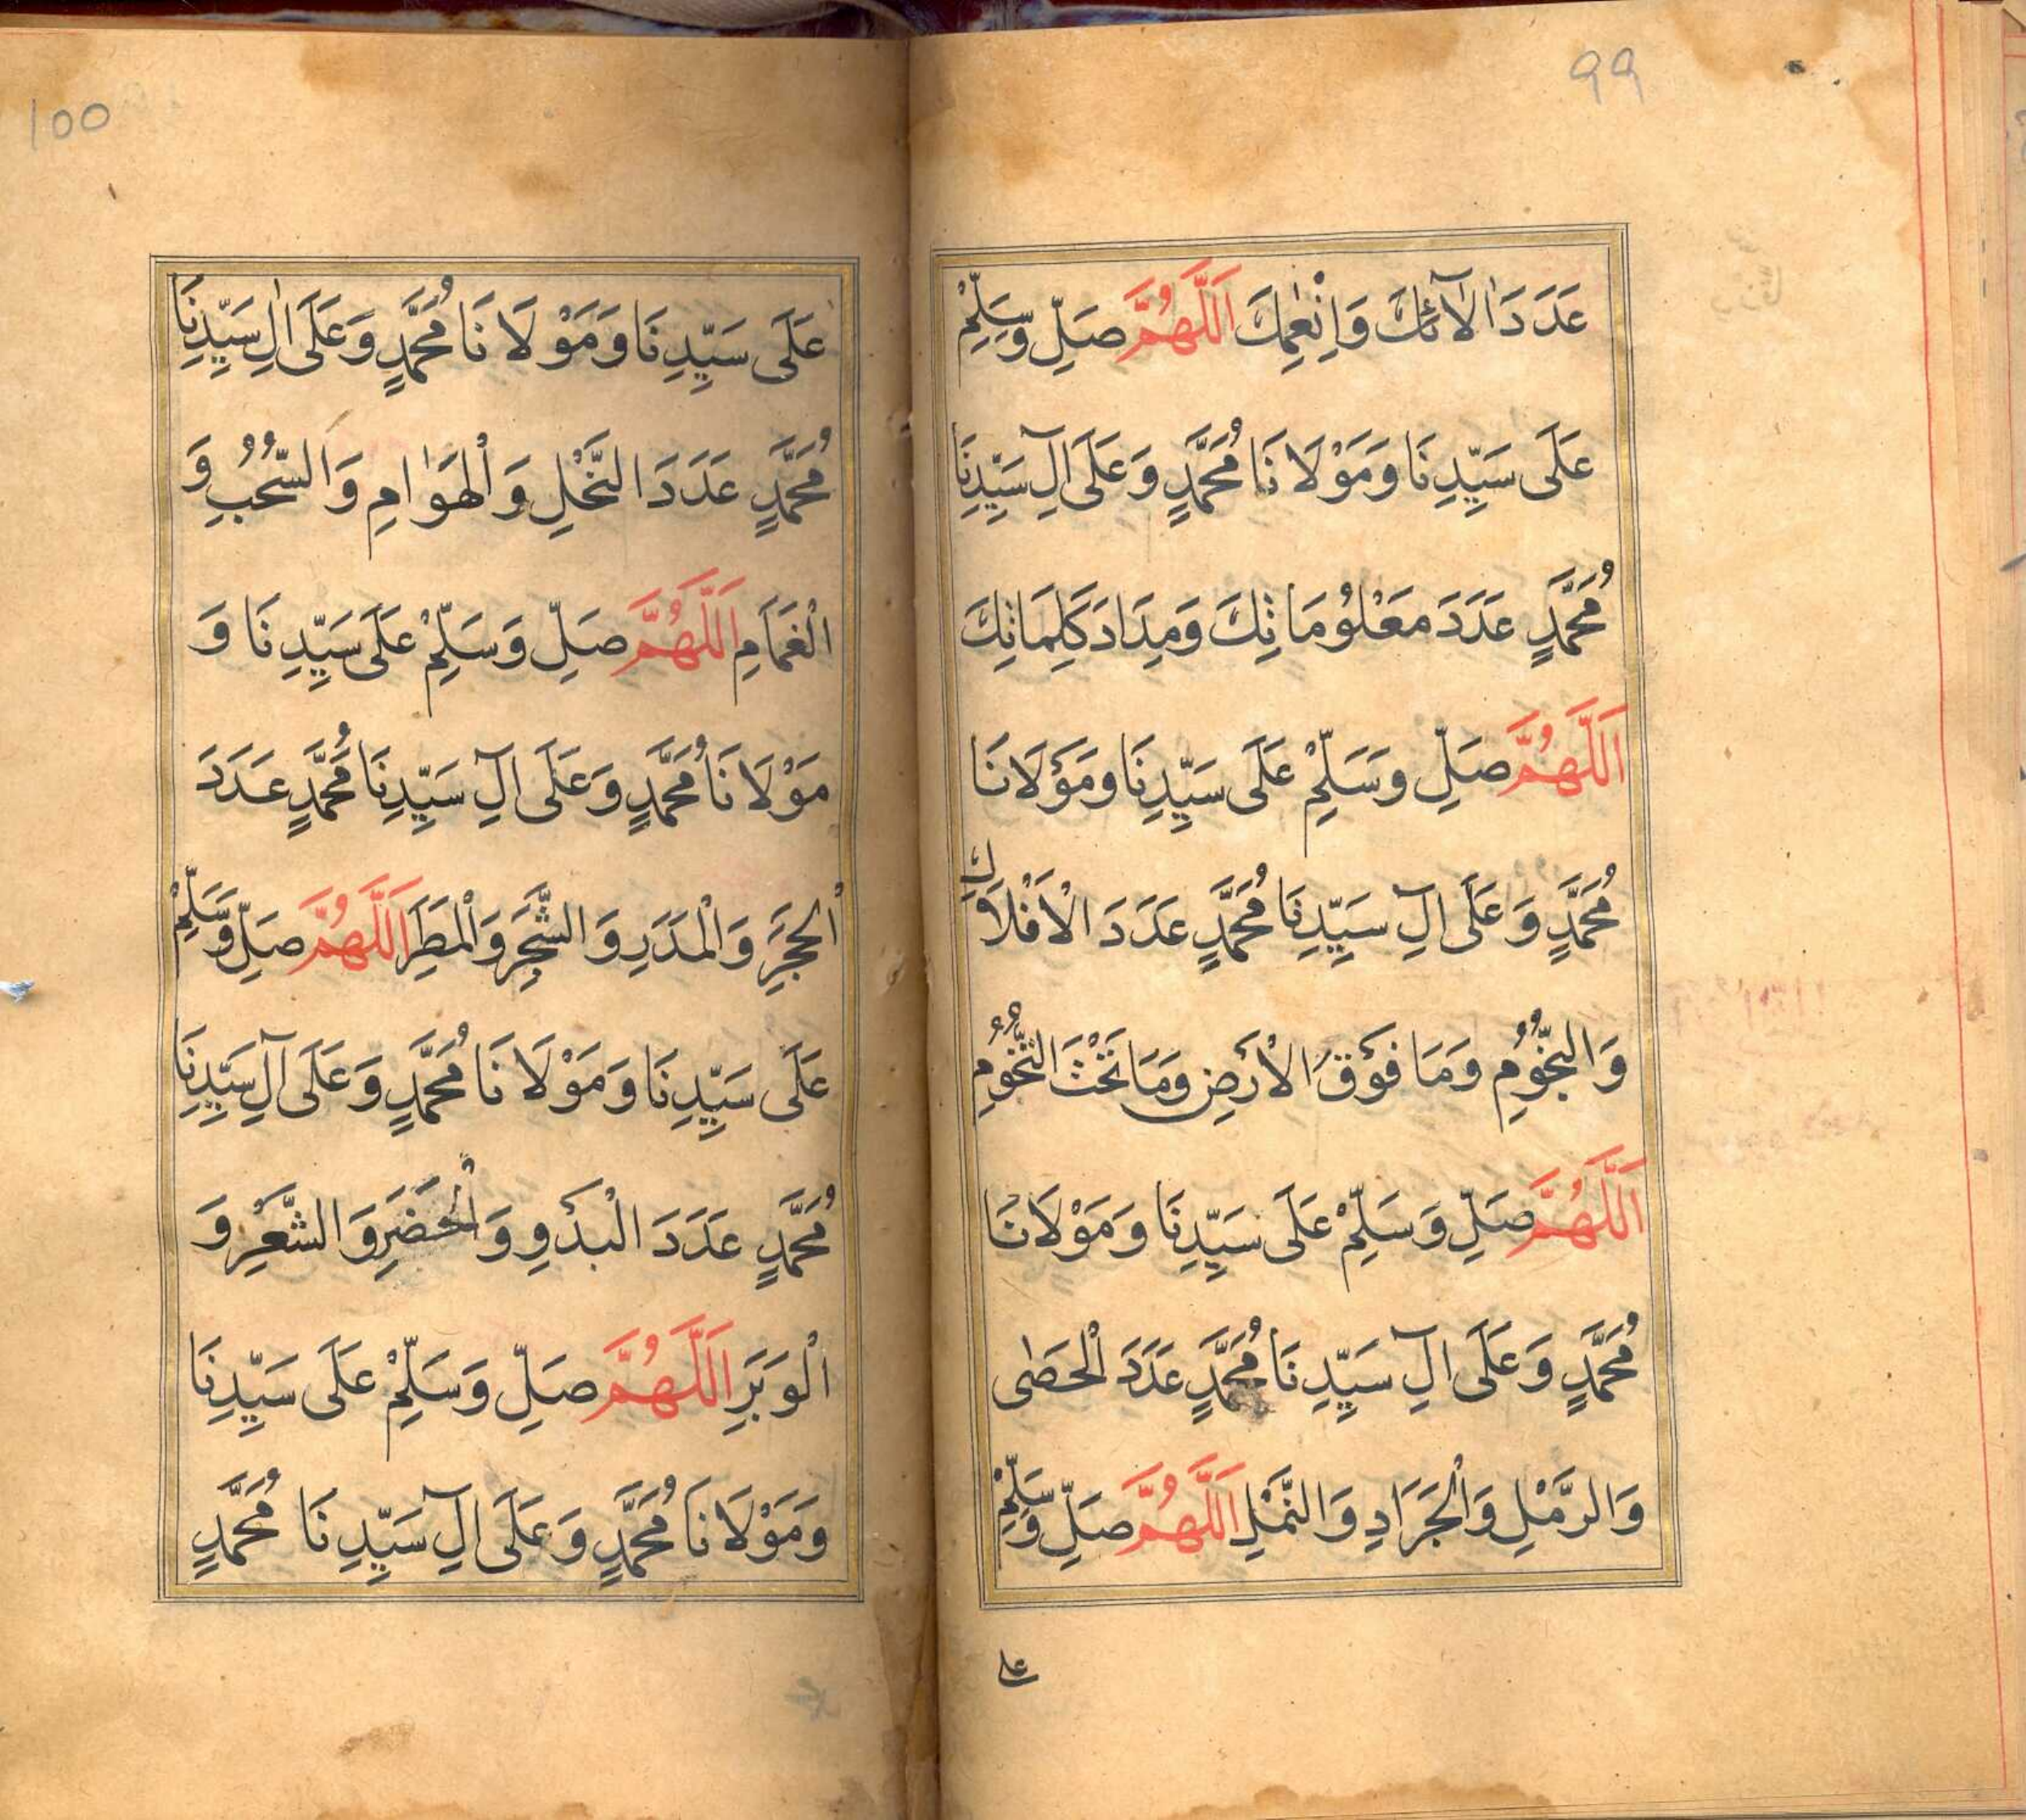 99
عَدَدَ اٰلَآئِكَ وَاِنْعٰمِكَ اَللّٰهُمَّ صَلِّ وَسَلِّمْ
عَلَى سَيِّدِنَا وَمَوْلَانَا مُحَمَّدٍ وَعَلَى آلِ سَيِّدِنَا
مُحَمَّدٍ عَدَدَ مَعْلُومَاتِكَ وَمِدَادَ كَلِمَاتِكَ
اَللّٰهُمَّ صَلِّ وَسَلِّمْ عَلَى سَيِّدِنَا وَمَوْلَانَا
مُحَمَّدٍ وَعَلَى آلِ سَيِّدِنَا مُحَمَّدٍ عَدَدَ الْاَفْلَاكِ
وَالنُّجُوْمِ وَمَا فَوْقَ الْاَرْضِ وَمَا تَحْتَ التُّخُوْمِ
اَللّٰهُمَّ صَلِّ وَسَلِّمْ عَلَى سَيِّدِنَا وَمَوْلَانَا
مُحَمَّدٍ وَعَلَى آلِ سَيِّدِنَا مُحَمَّدٍ عَدَدَ الْحَصٰى
وَالرَّمْلِ وَالْجَرَادِ وَالنَّمْلِ اَللّٰهُمَّ صَلِّ وَسَلِّمْ
على
100
عَلَى سَيِّدِنَا وَمَوْلَانَا مُحَمَّدٍ وَعَلَى اٰلِ سَيِّدِنَا
مُحَمَّدٍ عَدَدَ النَّخْلِ وَالْهَوَامِ وَالسُّحُبِ وَ
الْغَمَامِ اَللّٰهُمَّ صَلِّ وَسَلِّمْ عَلَى سَيِّدِنَا وَ
مَوْلَانَا مُحَمَّدٍ وَعَلَى آلِ سَيِّدِنَا مُحَمَّدٍ عَدَدَ
الْحَجَرِ وَالْمَدَرِ وَالشَّجَرِ وَالْمَطَرِ اَللّٰهُمَّ صَلِّ وَسَلِّمْ
عَلَى سَيِّدِنَا وَمَوْلَانَا مُحَمَّدٍ وَعَلَى آلِ سَيِّدِنَا
مُحَمَّدٍ عَدَدَ الْبَدْوِ وَالْحَضَرِ وَالشَّعْرِ وَ
الْوَبَرِ اَللّٰهُمَّ صَلِّ وَسَلِّمْ عَلَى سَيِّدِنَا
وَمَوْلَانَا مُحَمَّدٍ وَعَلَى آلِ سَيِّدِنَا مُحَمَّدٍ